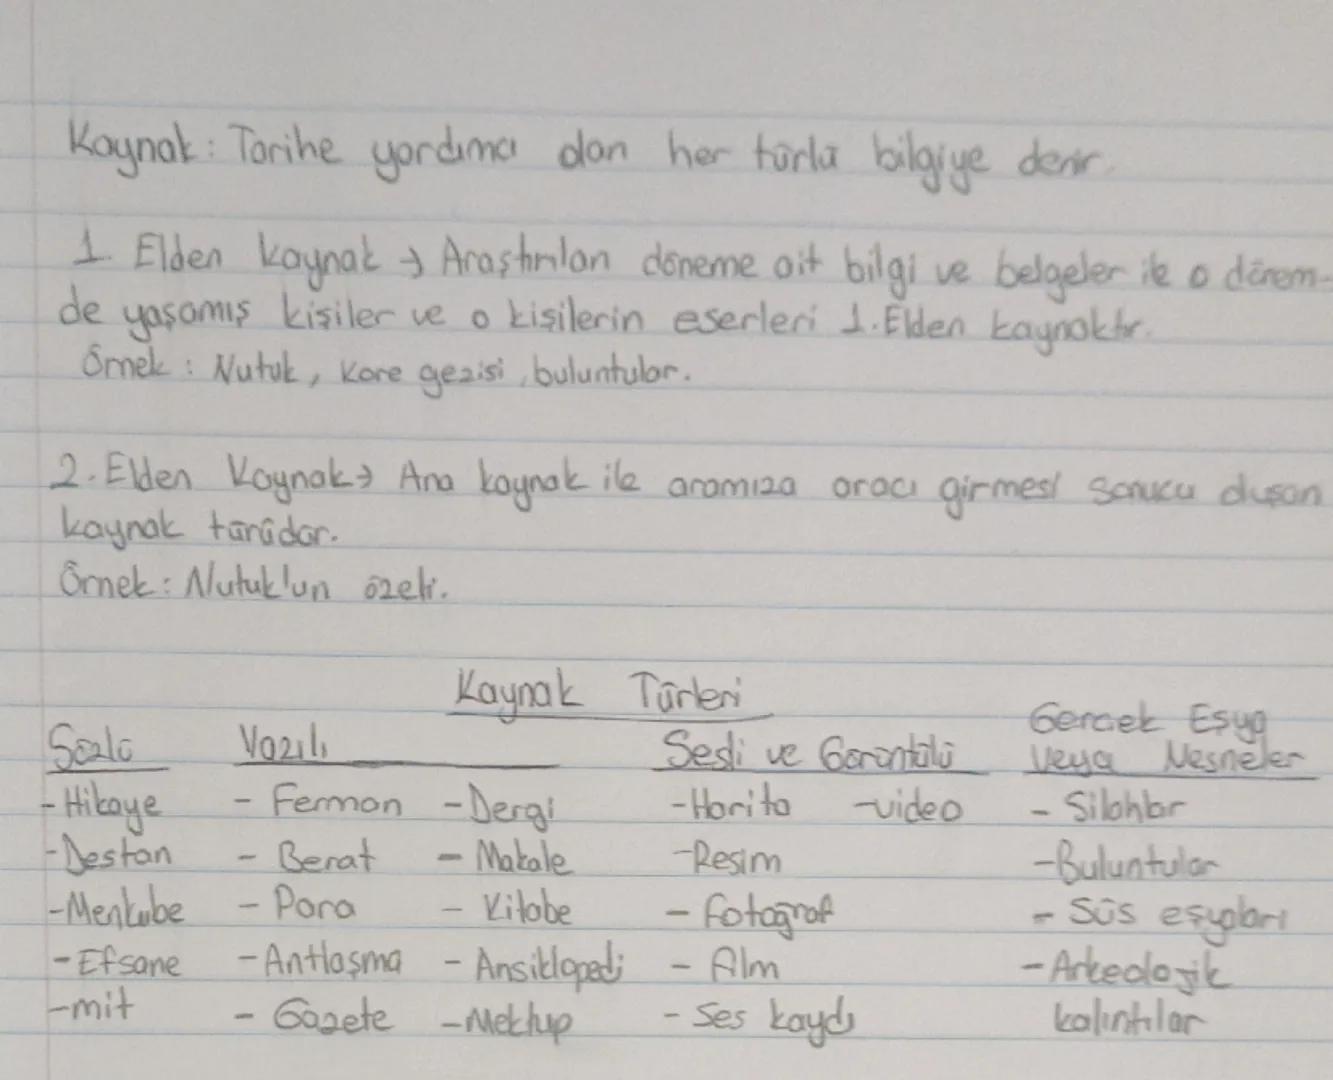 Kaynak: Tarihe yardımcı olan her türlü bilgiye denir.
1. Elden kaynak → Araştırılan döneme ait bilgi ve belgeler ile o dönem-
de yaşamış kişiler ve o kişilerin eserleri 1. Elden kaynaktır.
Örnek : Nutuk, Kore gezisi, buluntular.
2. Elden Kaynak → Ana kaynak ile aramıza aracı girmesi sonucu oluşan
kaynak türüdür.
Örnek: Nutuk'un özeti.
Kaynak Türleri
Sözlü Yazılı Sesli ve Görüntülü Gerçek Eşya veya Nesneler
- Hikaye - Ferman - Dergi - Harita - video - Silahlar
- Destan - Berat - Makale - Resim - Buluntular
- Menkube - Para - Kitabe - fotoğraf - Süs eşyaları
- Efsane - Antlaşma - Ansiklopedi - Film - Arkeolojik
- mit - Gazete - Mektup - Ses kaydı kalıntılar